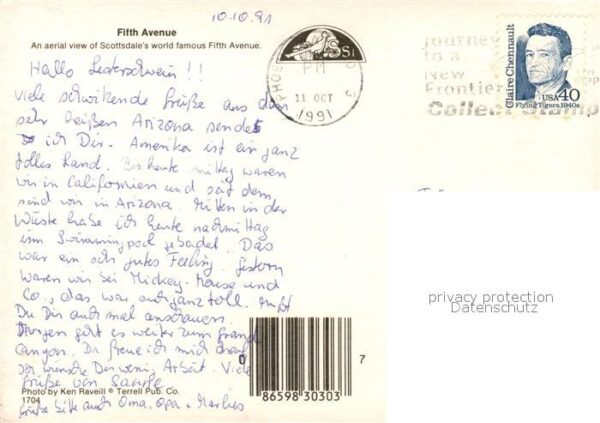 10.10.91
Fifth Avenue
An aerial view of Scottsdale's world famous Fifth Avenue.
Hallo Lesterschwein!!
Viele schwitzende Grüße aus dem
sehr heißen Arizona sende
ich Dir. Amerika ist ein ganz
tolles Land. Bis heute mittag waren
wir in Californien und seit dem
sind wir in Arizona. Mitten in der
Wüste habe ich heute nachmittag
im Swimmingpool gebadet. Das
war ein sehr gutes Feeling. Gestern
waren wir bei Mickey-Mouse und
Co., das war auch ganz toll. Mußt
Du Dir auch mal anschauen.
Morgen geht es weiter zum Grand
Canyon. Da freue ich mich drauf
wünsche Dir wenig Arbeit. Viele
Grüße von
Photo by Ken Raveill © Terrell Pub. Co.
1704
Grüße bitte auch Oma, Opa + Marlies
PM
11 OCT
1991
Journey
to a
New
Frontier
Collect Stamps
Claire Chennault
USA 40
Flying Tigers, 1940s
privacy protection
Datenschutz
0 7
86598 30303